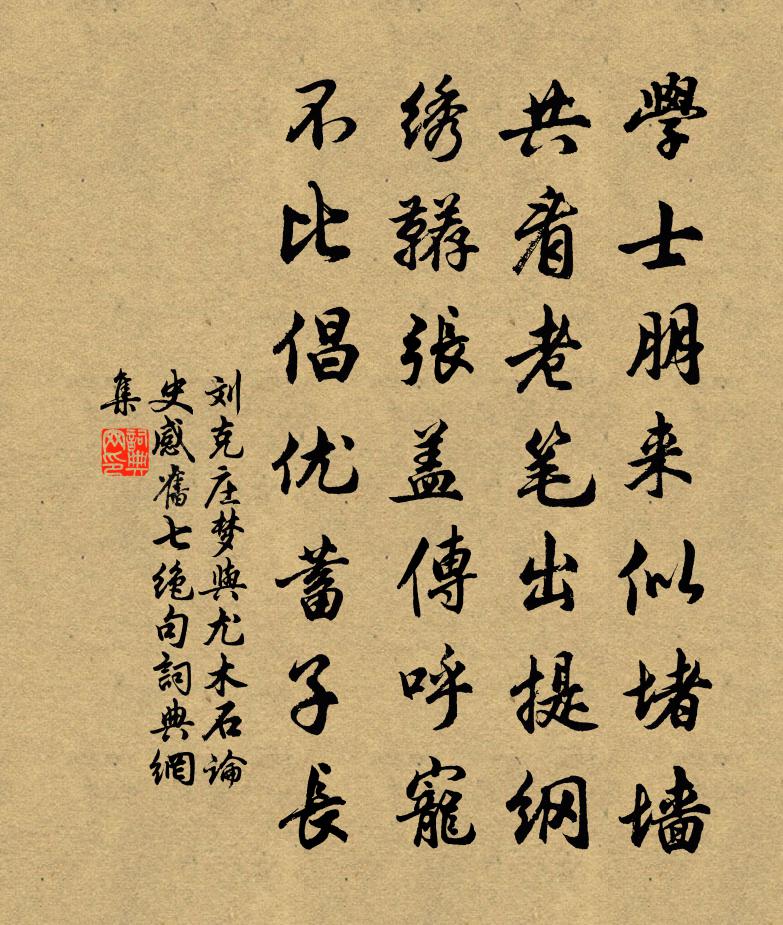 學士朋来似堵墙
共看老笔出提纲
绣韉張盖傳呼寵
不比倡优蓄子長
刘克庄梦與尤木石論
史感舊七绝句詞典網
集
詞典
网印